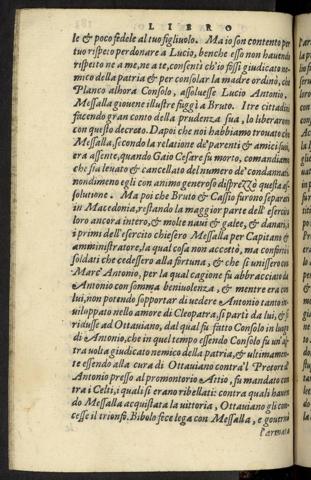 LIBRO
le & poco fedele al tuo figliuolo. Ma io son contento per
tuo rispeto perdonare a Lucio, benche esso non hauendo
rispetto ne a me, ne a te, consentì ch'io fossi giudicato ne-
mico della patria & per consolar la madre ordinò, che
Planco alhora Consolo, assoluesse Lucio Antonio.
Messalla giouene illustre fuggì a Bruto. I tre cittadini
facendo gran conto della prudenza sua, lo liberarono
con questo decreto. Dapoi che noi habbiamo trouato che
Messalla, secondo la relatione de' parenti & amici suoi,
era assente, quando Gaio Cesare fu morto, comandiamo
che sia leuato & cancellato del numero de' condannati.
nondimeno egli con animo generoso disprezzò questa as-
solutione. Ma poi che Bruto & Cassio furono separati
in Macedonia, restando la maggior parte dell' esercito
loro ancora intero, & molte naui & galee, & danari, &
i primi dell'esercito chiesero Messalla per Capitano &
amministratore, la qual cosa non accettò, ma confortò i
soldati che cedessero alla fortuna, & che si unissero con
Marc' Antonio, per la qual cagione fu abbracciato da
Antonio con somma beniuolenza, & mentre era con
lui, non potendo sopportar di uedere Antonio tanto in-
uiluppato nello amore di Cleopatra, si partì da lui, & si
ridusse ad Ottauiano, dal qual fu fatto Consolo in luogo
di Antonio, che in quel tempo essendo Consolo fu un'al
tra uolta giudicato nemico della patria, & ultimamen-
te essendo alla cura di Ottauiano contra'l Pretore
Antonio presso al promontorio Attio, fu mandato con
tra i Celti, i quali si erano ribellati: contra quali hauen
do Messalla acquistata la uittoria, Ottauiano gli con-
cesse il trionfo. Bibolo fece lega con Messalla, e gouernò
l'armata